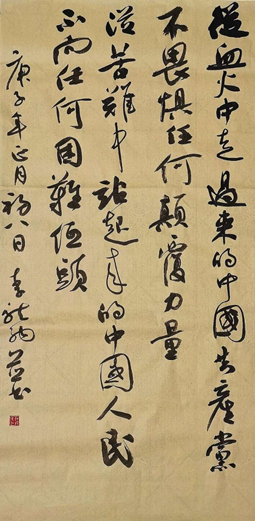 從血火中走過来的中國共產黨
不畏懼任何顛覆力量
從苦難中站起来的中國人民
不向任何困難低頭
庚子年正月初八日 李